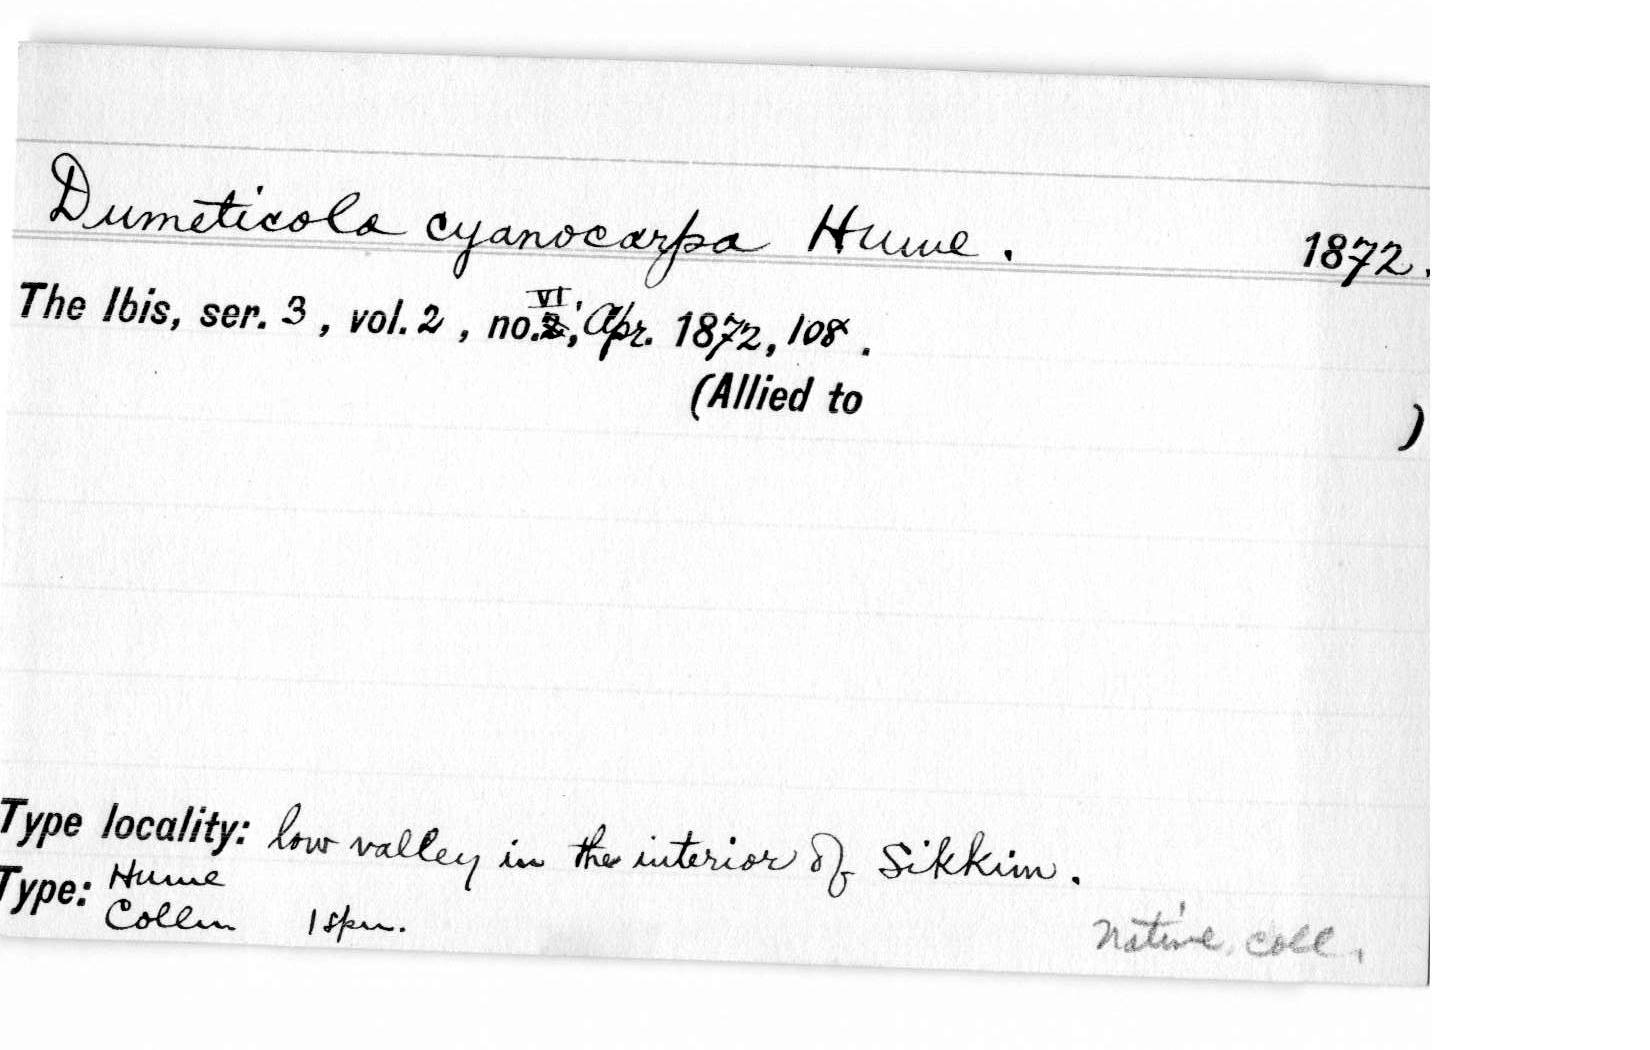 Dumeticola cyanocarpa Hume. 1872.
The Ibis, ser. 3, vol. 2, no. VI, Apr. 1872, 108.
(Allied to )
Type locality: low valley in the interior of Sikkim.
Type: Hume
Colln 1 spm.
Native. coll.